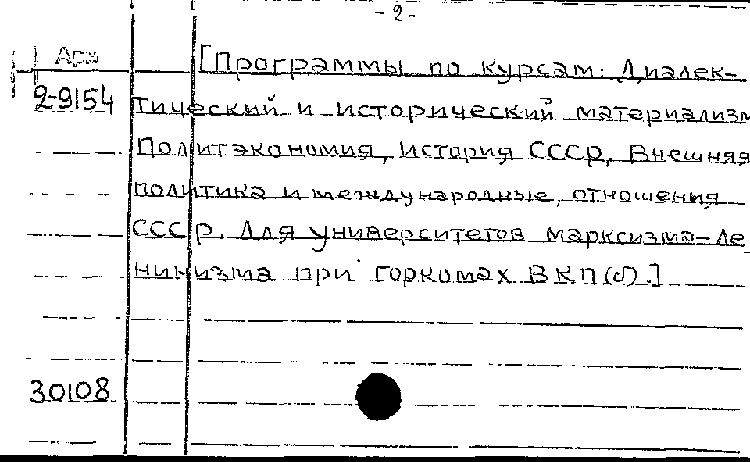 - 2 -
Арм
[Программы по курсам: Диалек-
2-9154 тический и исторический материализм
Политэкономия, История СССР, Внешняя
политика и международные отношения
СССР. Для университетов марксизма-ле
нинизма при горкомах ВКП(б).]
30108